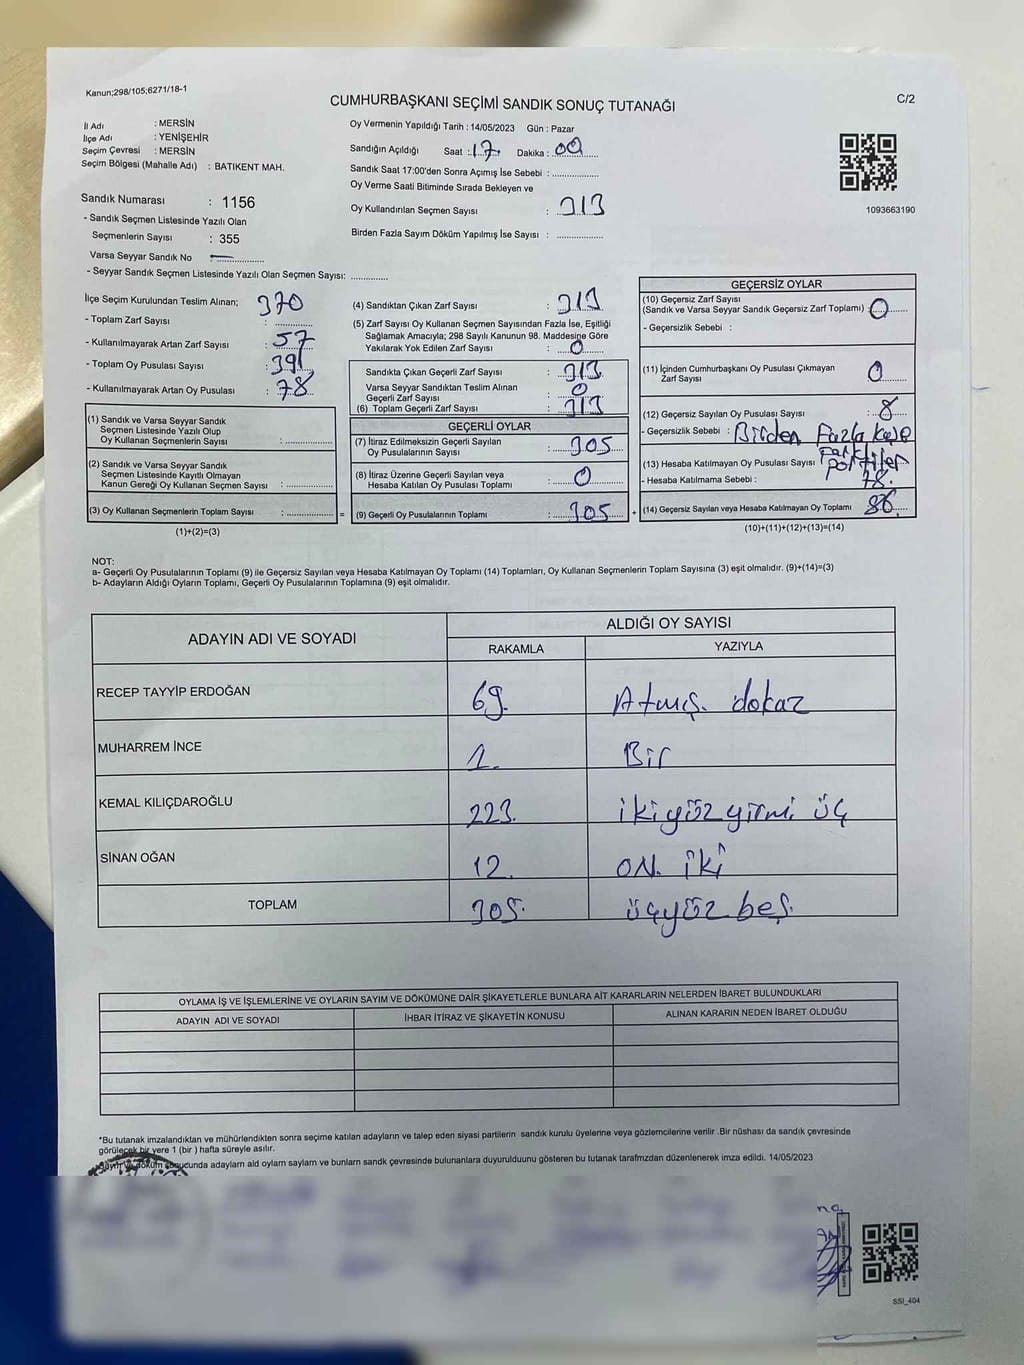 Kanun;298/105;6271/18-1
CUMHURBAŞKANI SEÇİMİ SANDIK SONUÇ TUTANAĞI
C/2
İl Adı : MERSİN
İlçe Adı : YENİŞEHİR
Seçim Çevresi : MERSİN
Seçim Bölgesi (Mahalle Adı) : BATIKENT MAH.
Sandık Numarası : 1156
- Sandık Seçmen Listesinde Yazılı Olan
Seçmenlerin Sayısı : 355
Varsa Seyyar Sandık No
- Seyyar Sandık Seçmen Listesinde Yazılı Olan Seçmen Sayısı: ..............
Oy Vermenin Yapıldığı Tarih : 14/05/2023 Gün : Pazar
Sandığın Açıldığı Saat : 17 Dakika : 00
Sandık Saat 17:00'den Sonra Açımış İse Sebebi : ..............
Oy Verme Saati Bitiminde Sırada Bekleyen ve
Oy Kullandırılan Seçmen Sayısı : 313
Birden Fazla Sayım Döküm Yapılmış İse Sayısı : ..............
1093663190
İlçe Seçim Kurulundan Teslim Alınan; 370
- Toplam Zarf Sayısı :
- Kullanılmayarak Artan Zarf Sayısı : 57
- Toplam Oy Pusulası Sayısı : 391
- Kullanılmayarak Artan Oy Pusulası : 78
(1) Sandık ve Varsa Seyyar Sandık
Seçmen Listesinde Yazılı Olup
Oy Kullanan Seçmenlerin Sayısı : ..............
(2) Sandık ve Varsa Seyyar Sandık
Seçmen Listesinde Kayıtlı Olmayan
Kanun Gereği Oy Kullanan Seçmen Sayısı : ..............
(3) Oy Kullanan Seçmenlerin Toplam Sayısı : .............. =
(1)+(2)=(3)
(4) Sandıktan Çıkan Zarf Sayısı : 313
(5) Zarf Sayısı Oy Kullanan Seçmen Sayısından Fazla İse, Eşitliği
Sağlamak Amacıyla; 298 Sayılı Kanunun 98. Maddesine Göre
Yakılarak Yok Edilen Zarf Sayısı : 0
Sandıkta Çıkan Geçerli Zarf Sayısı : 313
Varsa Seyyar Sandıktan Teslim Alınan
Geçerli Zarf Sayısı : 0
(6) Toplam Geçerli Zarf Sayısı : 313
GEÇERLİ OYLAR
(7) İtiraz Edilmeksizin Geçerli Sayılan
Oy Pusulalarının Sayısı : 305
(8) İtiraz Üzerine Geçerli Sayılan veya
Hesaba Katılan Oy Pusulası Toplamı : 0
(9) Geçerli Oy Pusulalarının Toplamı : 305 +
GEÇERSİZ OYLAR
(10) Geçersiz Zarf Sayısı
(Sandık ve Varsa Seyyar Sandık Geçersiz Zarf Toplamı) 0
- Geçersizlik Sebebi :
(11) İçinden Cumhurbaşkanı Oy Pusulası Çıkmayan
Zarf Sayısı 0
(12) Geçersiz Sayılan Oy Pusulası Sayısı : 8
- Geçersizlik Sebebi : Birden Fazla Kaşe
(13) Hesaba Katılmayan Oy Pusulası Sayısı
- Hesaba Katılmama Sebebi : 78.
(14) Geçersiz Sayılan veya Hesaba Katılmayan Oy Toplamı 86.
(10)+(11)+(12)+(13)=(14)
NOT:
a- Geçerli Oy Pusulalarının Toplamı (9) ile Geçersiz Sayılan veya Hesaba Katılmayan Oy Toplamı (14) Toplamları, Oy Kullanan Seçmenlerin Toplam Sayısına (3) eşit olmalıdır. (9)+(14)=(3)
b- Adayların Aldığı Oyların Toplamı, Geçerli Oy Pusulalarının Toplamına (9) eşit olmalıdır.
ADAYIN ADI VE SOYADI
ALDIĞI OY SAYISI
RAKAMLA YAZIYLA
RECEP TAYYİP ERDOĞAN 69. Atmış. dokaz
MUHARREM İNCE 1. Bir
KEMAL KILIÇDAROĞLU 223. ikiyüz yirmi üç
SİNAN OĞAN 12. ON. iki
TOPLAM 305. üçyüz beş.
OYLAMA İŞ VE İŞLEMLERİNE VE OYLARIN SAYIM VE DÖKÜMÜNE DAİR ŞİKAYETLERLE BUNLARA AİT KARARLARIN NELERDEN İBARET BULUNDUKLARI
ADAYIN ADI VE SOYADI İHBAR İTİRAZ VE ŞİKAYETİN KONUSU ALINAN KARARIN NEDEN İBARET OLDUĞU
*Bu tutanak imzalandıktan ve mühürlendikten sonra seçime katılan adayların ve talep eden siyasi partilerin sandık kurulu üyelerine veya gözlemcilerine verilir .Bir nüshası da sandık çevresinde
görülecek bir yere 1 (bir ) hafta süreyle asılır.
Sayım ve döküm sonucunda adayların ald oyların sayların ve bunların sandk çevresinde bulunanlara duyurulduunu gösteren bu tutanak tarafmzdan düzenlenerek imza edildi. 14/05/2023
SSI_404